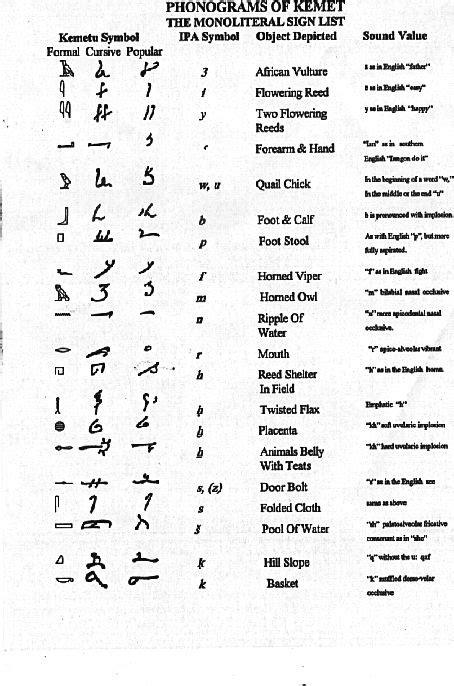 PHONOGRAMS OF KEMET
THE MONOLITERAL SIGN LIST
Kemetu Symbol IPA Symbol Object Depicted Sound Value
Formal Cursive Popular
3 African Vulture as in English "father"
Flowering Reed as in English "easy"
y Two Flowering y as in English "happy"
Reeds
Forearm & Hand as in southern
English
w, u Quail Chick In the beginning of a word "w,"
In the middle or the end "u"
b Foot & Calf b is pronounced with implosion.
p Foot Stool As with English "p", but more
fully aspirated.
f Horned Viper "f" as in English fight
m Horned Owl "m" bilabial nasal occlusive
n Ripple Of nasal
Water occlusive.
r Mouth "r" apico-alveolar vibrant
h Reed Shelter "h" as in the English
In Field
ḥ Twisted Flax Emphatic "h"
Placenta "kh" soft uvularic implosion
Animals Belly "kh" hard uvularic implosion
With Teats
s, (z) Door Bolt as in the English see
s Folded Cloth same as above
Pool Of Water "sh" palatoalveolar fricative
consonant as in "she"
Hill Slope "q" without the u: qaf
k Basket "k" dorso-velar
occlusive